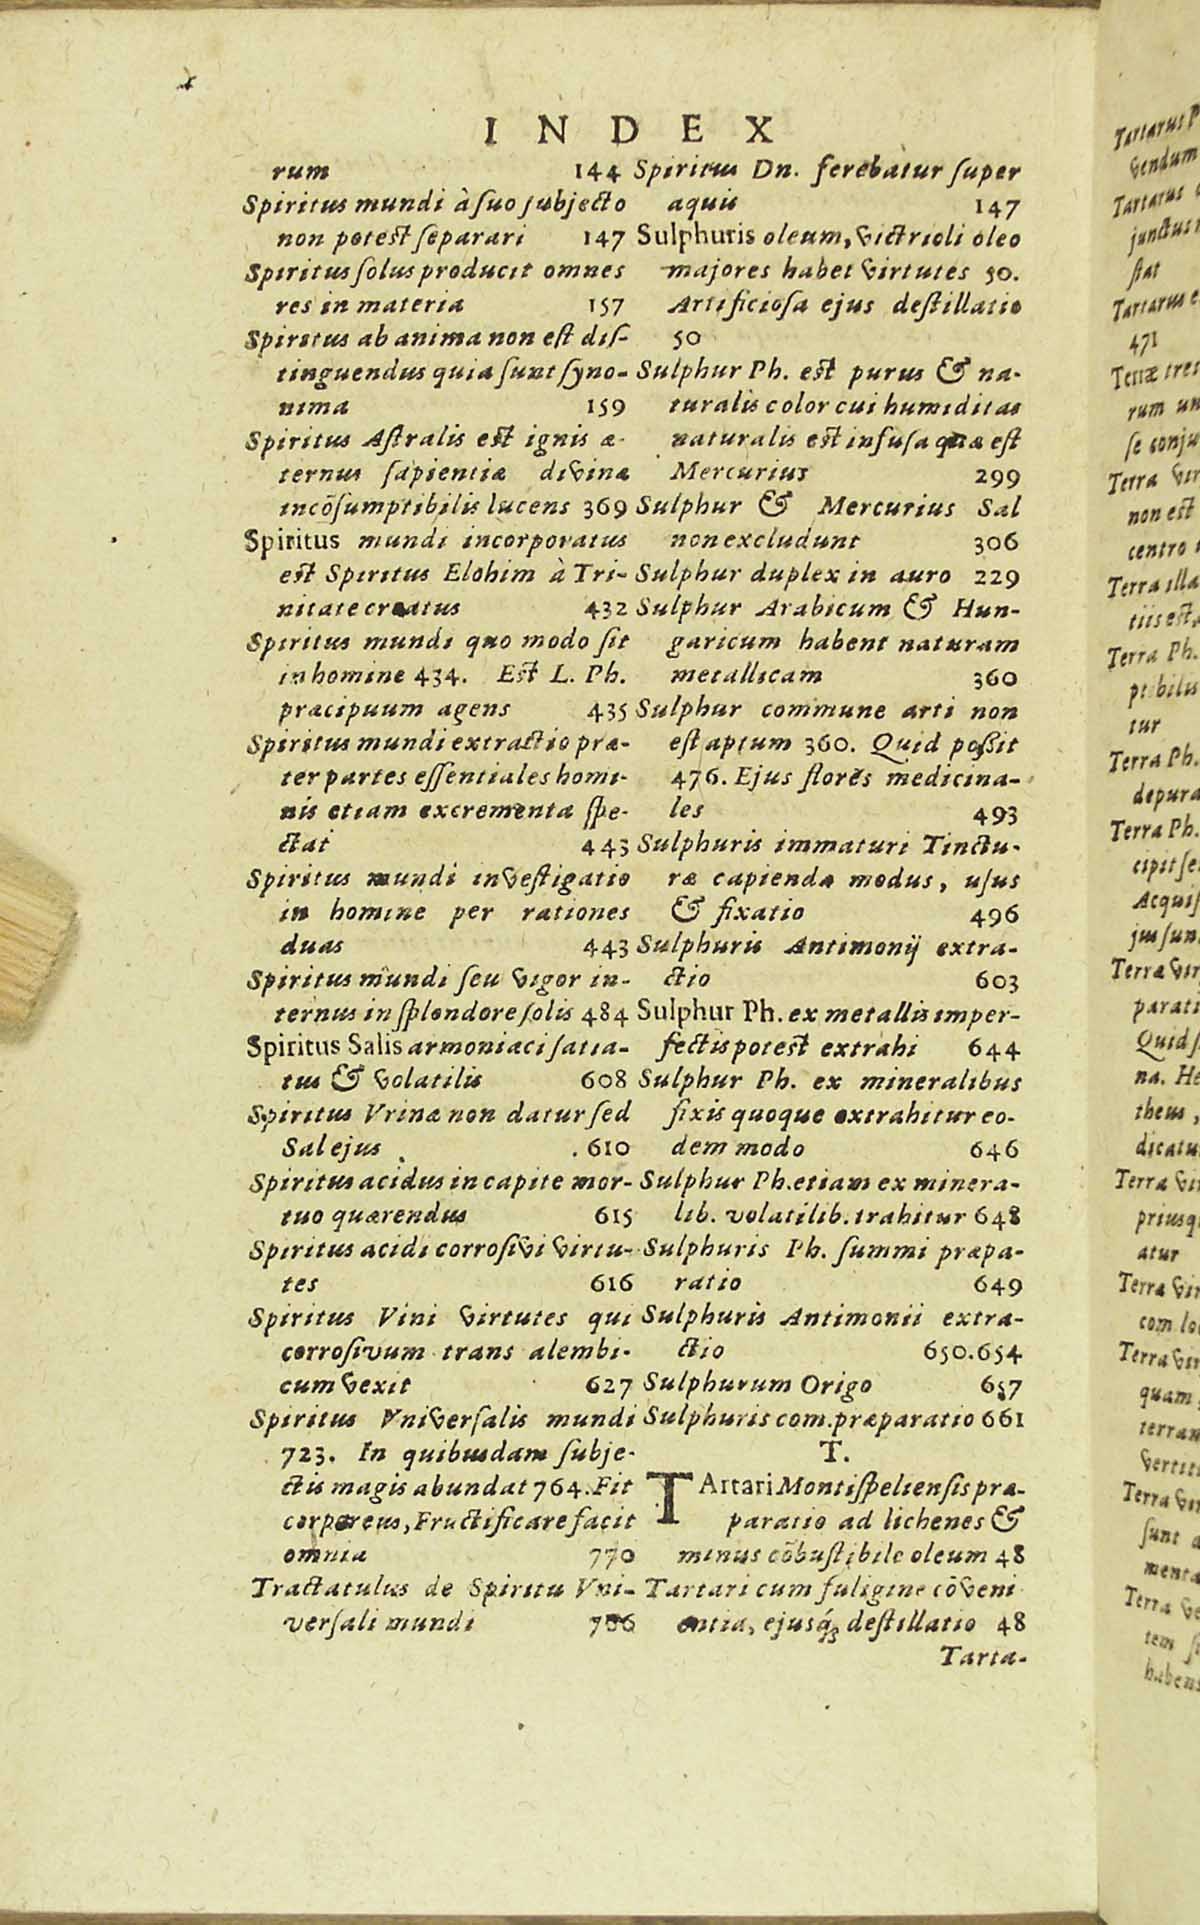 INDEX
rum 144
Spiritus mundi à suo subjecto
non potest separari 147
Spiritus solus producit omnes
res in materia 157
Spiritus ab anima non est dis-
tinguendus quia sunt syno-
nima 159
Spiritus Astralis est ignis æ-
ternus sapientiæ divinæ
incōsumptibilis lucens 369
Spiritus mundi incorporatus
est Spiritus Elohim à Tri-
nitate creatus 432
Spiritus mundi quo modo sit
in homine 434. Est L. Ph.
præcipuum agens 435
Spiritus mundi extractio præ-
ter partes essentiales homi-
nis etiam excrementa spe-
ctat 443
Spiritus mundi investigatio
in homine per rationes
duas 443
Spiritus mundi seu vigor in-
ternus in splendore solis 484
Spiritus Salis armoniaci satia-
tus & volatilis 608
Spiritus Vrinæ non datur sed
Sal ejus 610
Spiritus acidus in capite mor-
tuo quærendus 615
Spiritus acidi corrosivi virtu-
tes 616
Spiritus Vini virtutes qui
corrosivum trans alembi-
cum vexit 627
Spiritus Vniversalis mundi
723. In quibusdam subje-
ctis magis abundat 764. Fit
corporeus, Fructificare facit
omnia 770
Tractatulus de Spiritu Vni-
versali mundi
Spiritus Dn. ferebatur super
aquis 147
Sulphuris oleum, victrioli oleo
majores habet virtutes 50.
Artificiosa ejus destillatio
50
Sulphur Ph. est purus & na-
turalis color cui humiditas
naturalis est infusa quæ est
Mercurius 299
Sulphur & Mercurius Sal
non excludunt 306
Sulphur duplex in auro 229
Sulphur Arabicum & Hun-
garicum habent naturam
metallicam 360
Sulphur commune arti non
est aptum 360. Quid possit
476. Ejus flores medicina-
les 493
Sulphuris immaturi Tinctu-
ræ capiendæ modus, usus
& fixatio 496
Sulphuris Antimonij extra-
ctio 603
Sulphur Ph. ex metallis imper-
fectis potest extrahi 644
Sulphur Ph. ex mineralibus
fixis quoque extrahitur eo-
dem modo 646
Sulphur Ph. etiam ex minera-
lib. volatilib. trahitur 648
Sulphuris Ph. summi præpa-
ratio 649
Sulphuris Antimonii extra-
ctio 650.654
Sulphurum Origo 657
Sulphuris com. præparatio 661
T.
TArtari Montispeliensis præ-
paratio ad lichenes &
minus cōbustibile oleum 48
Tartari cum fuligine cōveni
entia, ejusq́; destillatio 48
Tarta-
Tartarus
vendum
Tartarus
stat
Tartarus
471
Terræ
rum
Terra
non est
centro
Terra
Terra Ph.
tur
Terra Ph.
Terra Ph.
Terra
Quid
na.
Terra
atur
Terra
Terra
quam
Terra
sunt
Terra
tem